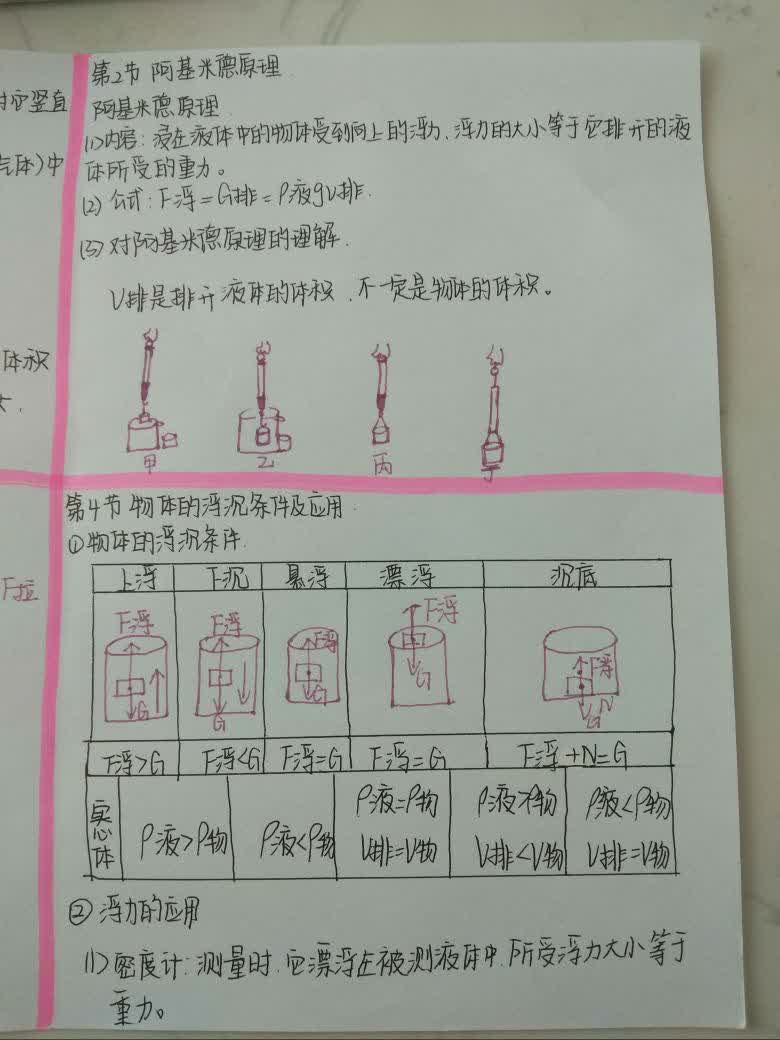 时它竖直
气体)中
体积
大.
F拉
第2节 阿基米德原理
阿基米德原理
(1)内容:浸在液体中的物体受到向上的浮力、浮力的大小等于它排开的液
体所受的重力。
(2) 公式:F浮=G排=ρ液gV排.
(3) 对阿基米德原理的理解.
V排是排开液体的体积、不一定是物体的体积。
甲 乙 丙 丁
第4节 物体的浮沉条件及应用
①物体的浮沉条件.
上浮 下沉 悬浮 漂浮 沉底
F浮 F浮 F浮 F浮 F浮
G G G G G N
F浮>G F浮<G F浮=G F浮=G F浮+N=G
实心体 ρ液>ρ物 ρ液<ρ物 ρ液=ρ物 ρ液>ρ物 ρ液<ρ物
V排=V物 V排<V物 V排=V物
② 浮力的应用
(1) 密度计:测量时.它漂浮在被测液体中.所受浮力大小等于
重力。